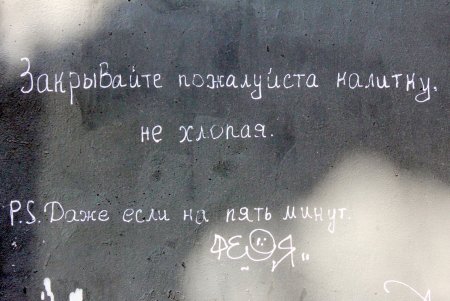 Закрывайте пожалуйста калитку,
не хлопая.
P.S. Даже если на пять минут.